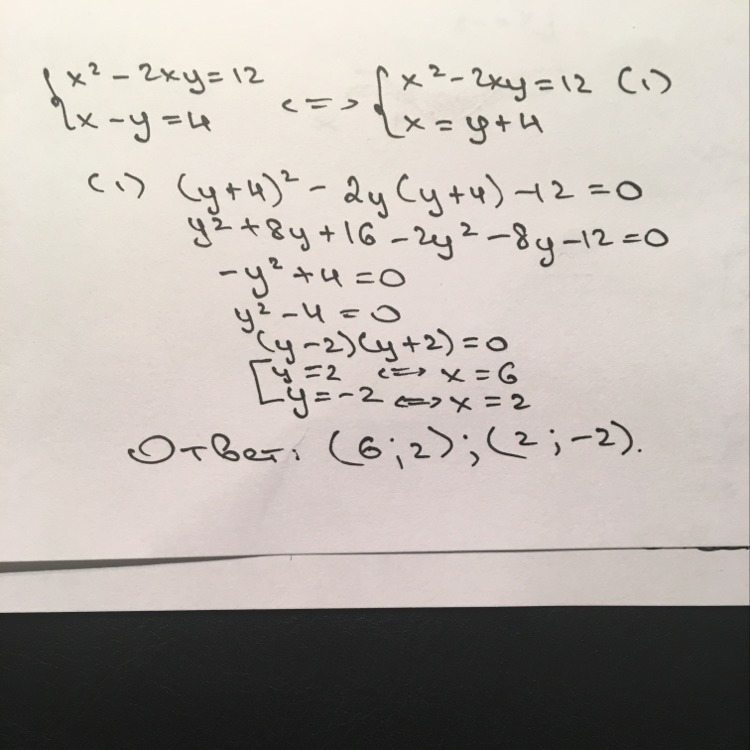 {x² - 2xy = 12 <=> {x² - 2xy = 12 (1)
{x - y = 4 {x = y + 4
(1) (y+4)² - 2y(y+4) - 12 = 0
y² + 8y + 16 - 2y² - 8y - 12 = 0
-y² + 4 = 0
y² - 4 = 0
(y-2)(y+2) = 0
[y = 2 <=> x = 6
[y = -2 <=> x = 2
Ответ: (6;2);(2;-2).